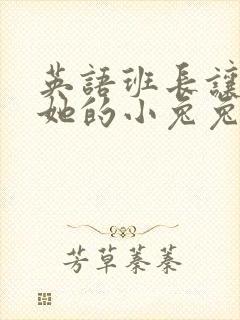 英語班長讓
她的小兔兔
芳草蓁蓁